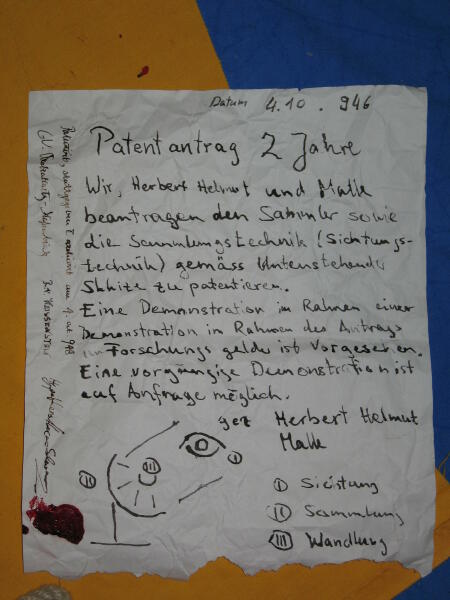 Datum 4.10.946
Patentantrag 2 Jahre
Wir, Herbert Helmut und Malk
beantragen den Sammler sowie
die Sammlungstechnik (Sichtungs-
technik) gemäss Untenstehender
Skkize zu patentieren.
Eine Demonstration im Rahmen einer
Demonstration im Rahmen des Antrags
um Forschungsgelder ist Vorgesehen.
Eine vorgängige Demonstration ist
auf Anfrage möglich.
gez Herbert Helmut
Malk
I
II
III
I Sichtung
II Sammlung
III Wandlung